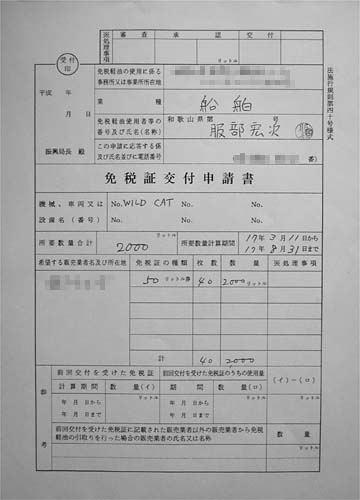 法施行規則第四十号様式
※処理事項
審査 承認 交付
リットル
受付印
平成 年 月 日
振興局長 殿
免税軽油の使用に係る事務所又は事業所所在地
業種 船舶
免税軽油使用者等の番号及び氏名(名称)
和歌山県第 号
服部宏次
この申請に応答する係及び氏名並びに電話番号
番)
免税証交付申請書
機械、車両又は設備名(番号)
No. WILD CAT No. No.
No. No. No.
所要数量合計 2000 リットル
所要数量計算期間 17年3月11日から
17年8月31日まで
希望する販売業者名及び所在地 免税証の種類 枚数 数量 ※処理事項
50 リットル券 40 2000 リットル
計 40 2000
参考
前回交付を受けた免税証 前回交付を受けた免税証のうちの使用量 (イ)-(ロ)
計算期間 数量(イ) 期間 数量(ロ)
年 月 日から リットル 年 月 日から リットル リットル
年 月 日まで 年 月 日まで
前回交付を受けた免税証に記載された販売業者以外の販売業者から免税軽油の引取りを行った場合の販売業者の氏名又は名称
数量
リットル